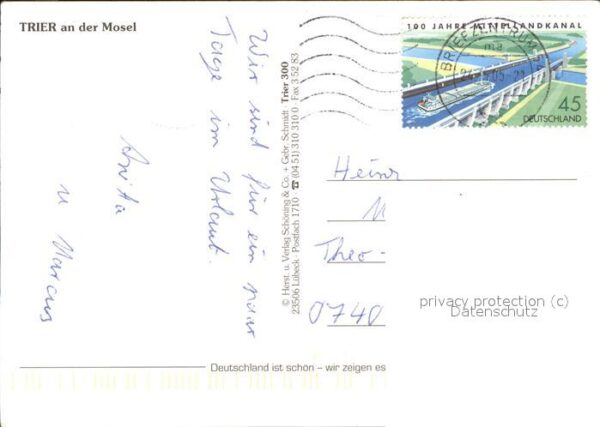 TRIER an der Mosel
Wir sind für ein paar
Tage im Urlaub.
Anita
u Marcus
© Herst. u. Verlag Schöning & Co. + Gebr. Schmidt · Trier 300
23506 Lübeck · Postfach 1710 · ☎ (0451) 310 310 0 · Fax 3 52 83
100 JAHRE MITTELLANDKANAL
BRIEFZENTRUM
45
DEUTSCHLAND
Heinz
M
Theo-
0740
privacy protection (c)
Datenschutz
Deutschland ist schön – wir zeigen es